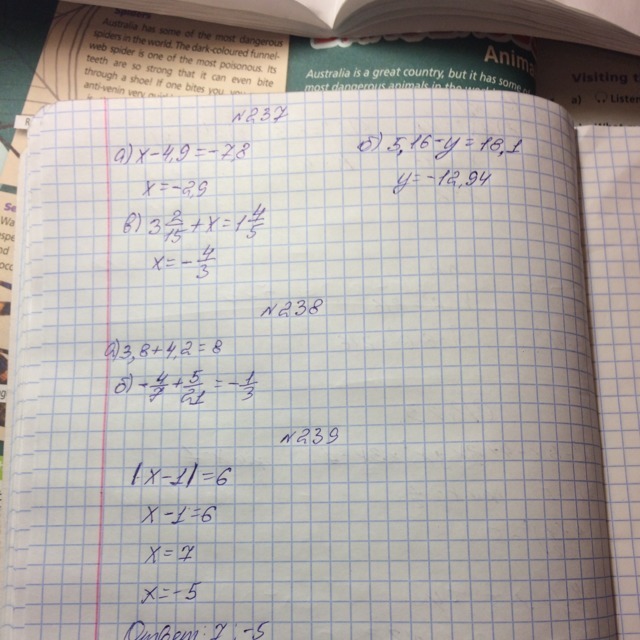 spiders
Australia has some of the most dangerous
spiders in the world. The dark-coloured funnel-
web spider is one of the most poisonous. Its
teeth are so strong that it can even bite
through a shoe! If one bites you,
anti-venin
Anim
Australia is a great country, but it has some
most dangerous animals in the
Visiting t
a) Listen
Se
Wa
N237
а) x-4,9=-7,8
x=-2,9
б) 5,16-y=18,1
y=-12,94
в) 3 2/15 + x = 1 4/5
x=-4/3
N238
а) 3,8+4,2=8
б) -4/7+5/21=-1/3
N239
|x-1|=6
x-1=6
x=7
x=-5
Ответ: 7; -5